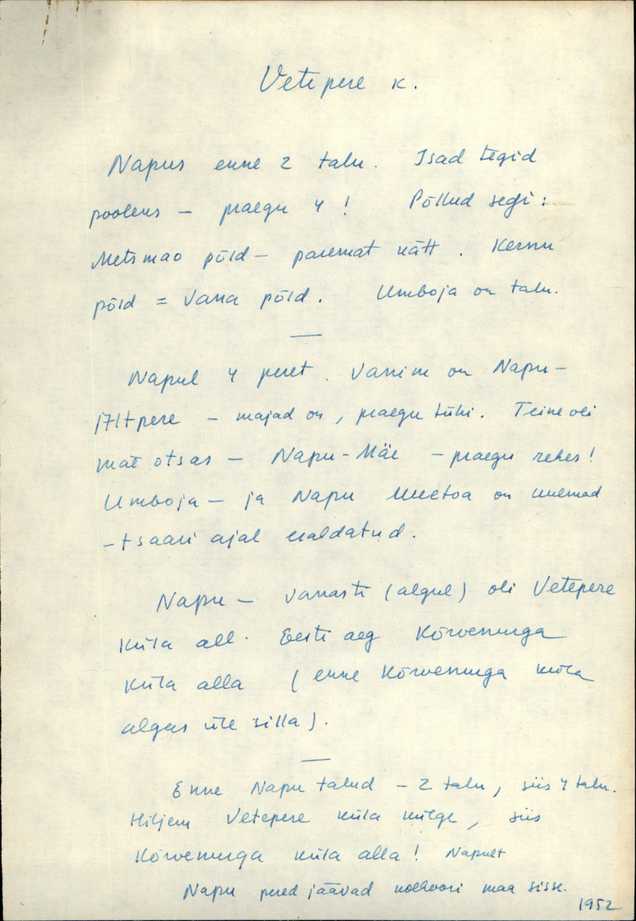 Vetepere k.
Napus enne 2 talu. Isad tegid
pooleks – praegu 4! Põllud segi:
Metsmao põld – paremat kätt. Kernu
põld = Vana põld. Umboja on talu.
Napul 4 peret. Vanim on Napu-
Altpere – majad on, praegu tühi. Teine oli
mäe otsas – Napu-Mäe – praegu
Umboja – ja Napu Uuetoa on uuemad
– tsaari ajal eraldatud.
Napu – vanasti (algul) oli Vetepere
küla all. Eesti aeg Kõrvenurga
küla alla (enne Kõrvenurga küla
algas üle silla).
Enne Napu talud – 2 talu, siis 4 talu.
Hiljem Vetepere küla külge, siis
Kõrvenurga küla alla! Napult
Napu pered jäävad kolhoosi maa sisse.
1952